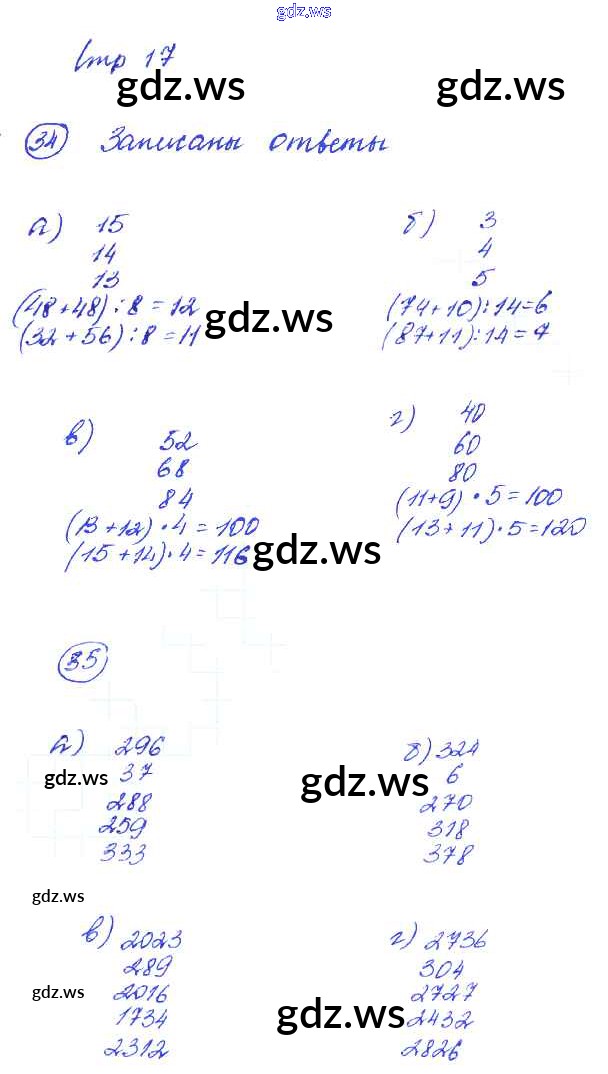 gdz.ws
Стр 17
gdz.ws gdz.ws
34 Записаны ответы
а) 15
14
13
(48+48) : 8 = 12
(32 + 56) : 8 = 11
б) 3
4
5
(74+10) : 14 = 6
(87+11) : 14 = 7
gdz.ws
в) 52
68
84
(13+12) · 4 = 100
(15 + 14) · 4 = 116
г) 40
60
80
(11+9) · 5 = 100
(13+11) · 5 = 120
gdz.ws
35
а) 296
37
288
259
333
б) 324
6
270
318
378
gdz.ws gdz.ws
gdz.ws
в) 2023
289
2016
1734
2312
г) 2736
304
2727
2432
2826
gdz.ws gdz.ws